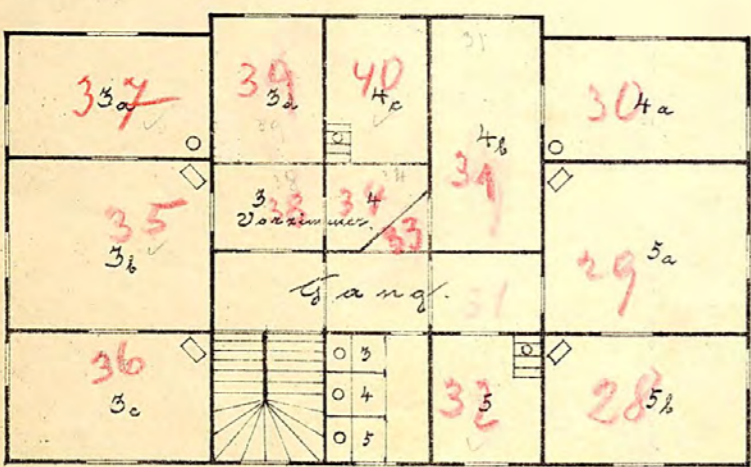 37 3a
39 3d
40 4c
4b
30 4a
35 3b
3 38 34 4
Vorzimmer.
33
29 5a
Gang.
31
36 3c
3
4
5
32 5
28 5b